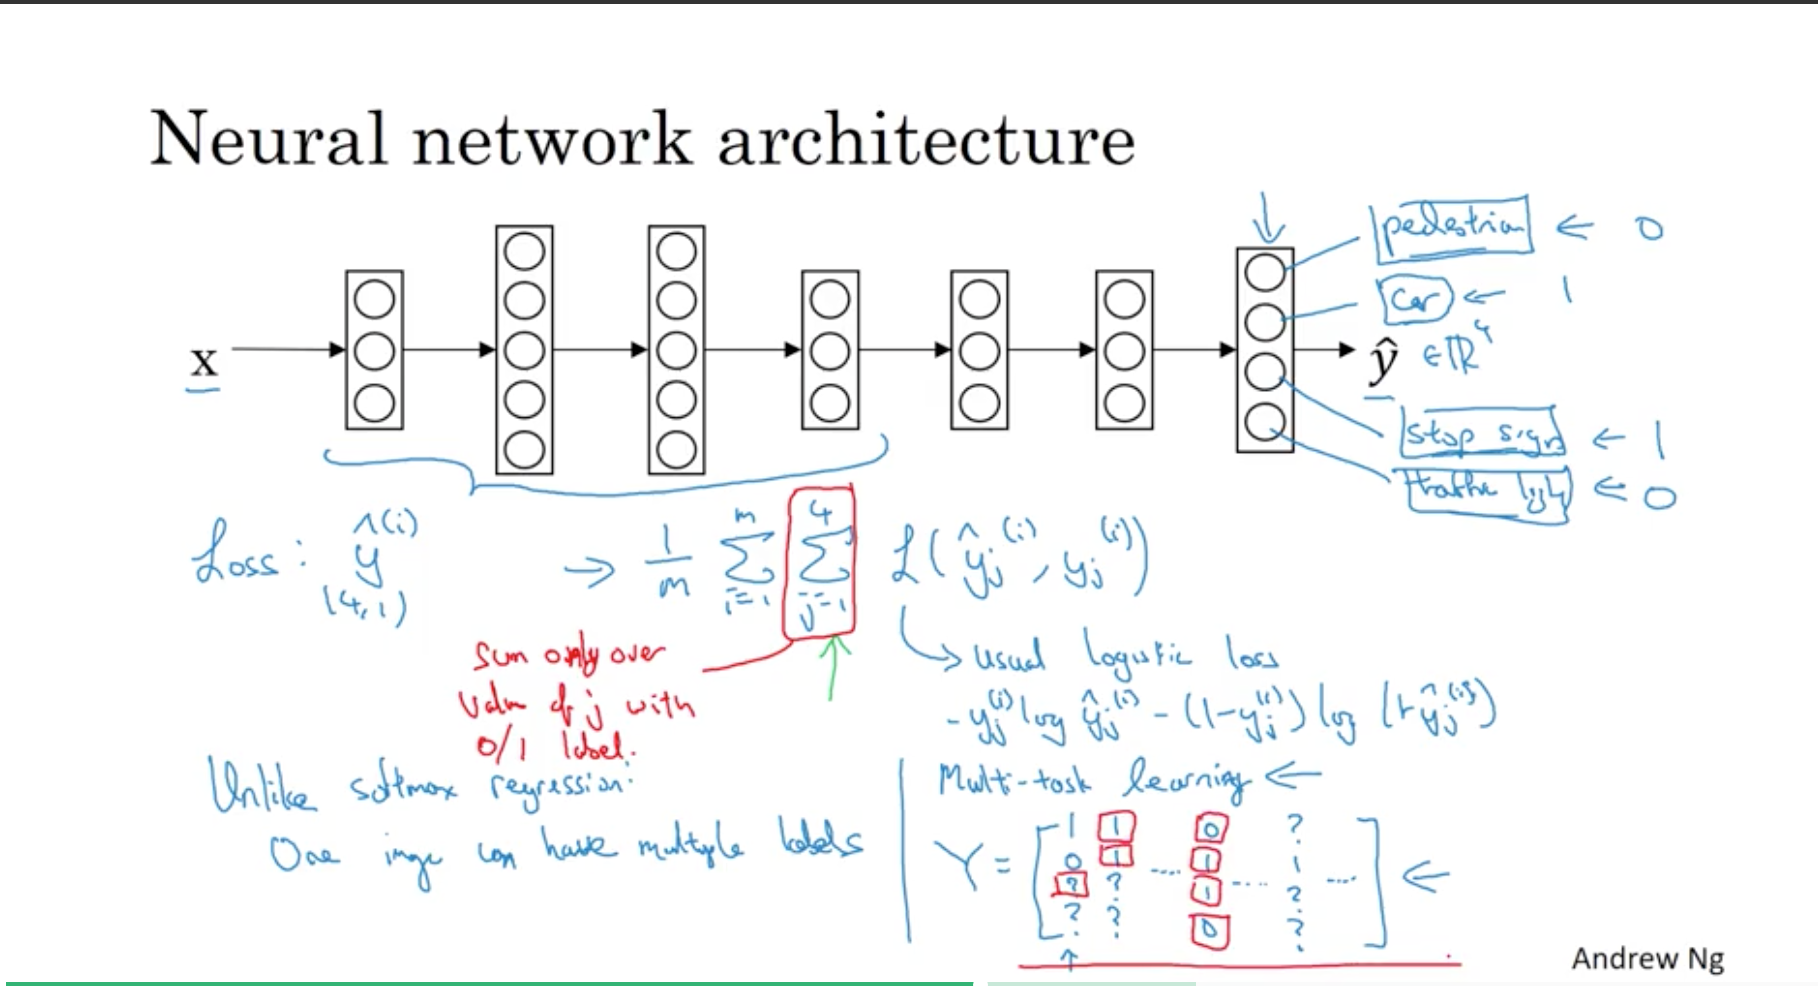 Neural network architecture
pedestrian ← 0
car ← 1
x
ŷ ∈ ℝ⁴
stop sign ← 1
traffic ← 0
Loss: ŷ^(i) (4,1) → 1/m ∑_{i=1}^{m} ∑_{j=1}^{4} ℒ(ŷ_j^(i), y_j^(i))
sum only over
value of j with
0/1 label.
usual logistic loss
- y_j^(i) log ŷ_j^(i) - (1-y_j^(i)) log (1-ŷ_j^(i))
Unlike softmax regression:
One image can have multiple labels
Multi-task learning ←
Y = [
1 1 0 ?
0 1 .... 1 1
? ? 1 .... ? ...
? ? 0 ?
] ←
Andrew Ng